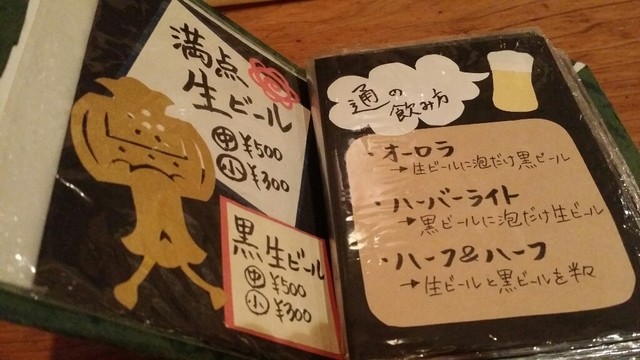 満点
生ビール
中 ¥500
小 ¥300
黒生ビール
中 ¥500
小 ¥300
通の
飲み方
・オーロラ
→生ビールに泡だけ黒ビール
・ハーバーライト
→黒ビールに泡だけ生ビール
・ハーフ&ハーフ
→生ビールと黒ビールを半々